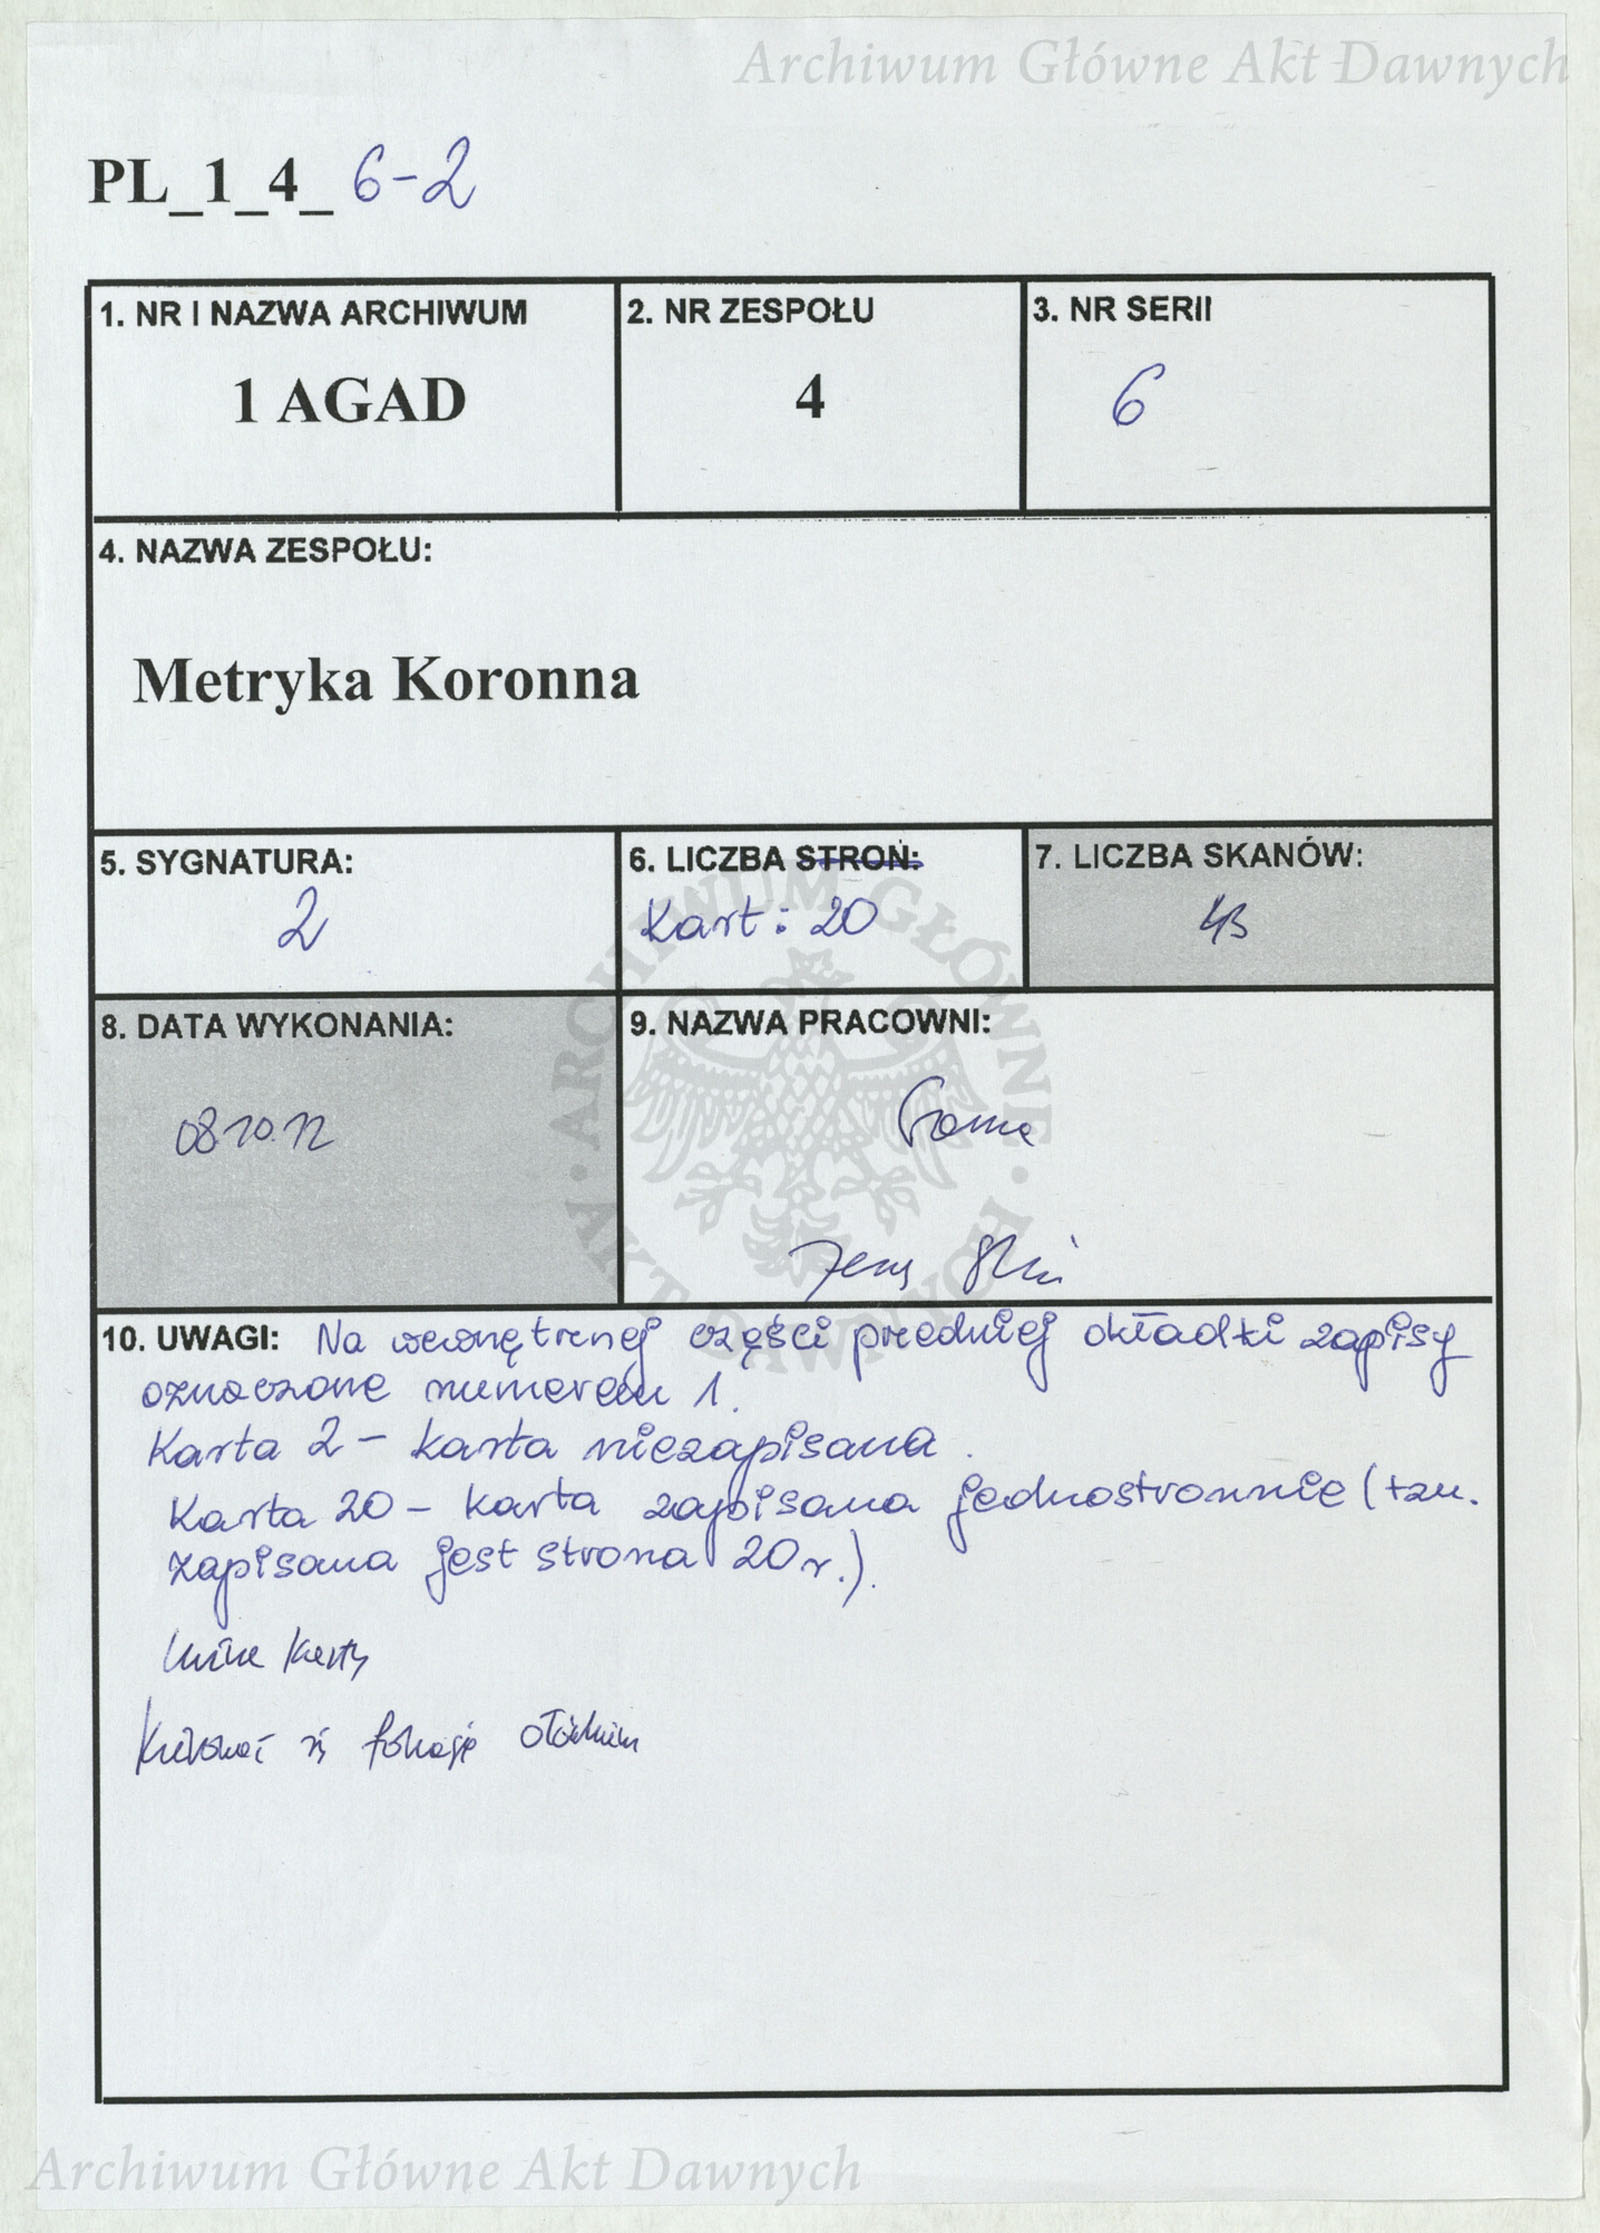 Archiwum Główne Akt Dawnych
PL_1_4_ 6-2
1. NR I NAZWA ARCHIWUM
1 AGAD
2. NR ZESPOŁU
4
3. NR SERII
6
4. NAZWA ZESPOŁU:
Metryka Koronna
5. SYGNATURA:
2
6. LICZBA STRON:
Kart: 20
7. LICZBA SKANÓW:
43
8. DATA WYKONANIA:
08.10.12
9. NAZWA PRACOWNI:
ARCHIWUM GŁÓWNE AKT DAWNYCH
10. UWAGI: Na wewnętrznej części przedniej okładki zapisy
oznaczone numerem 1.
Karta 2 - karta niezapisana.
Karta 20 - karta zapisana jednostronnie (tzn.
zapisana jest strona 20r.).
karty
ołówkiem
Archiwum Główne Akt Dawnych